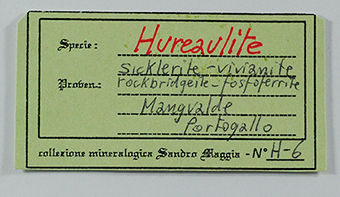 Specie: Hureaulite
Sicklerite-vivianite
Proven.: rockbridgeite-fosfoferrite
Mangualde
Portogallo
collezione mineralogica Sandro Maggia - N° H-6